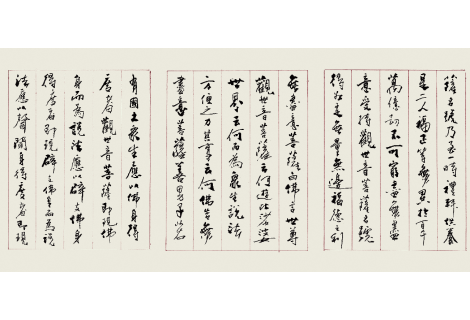 薩名號乃至一時禮拜供養
是二人福正等無異於百千
萬億劫不可窮盡無盡
意受持觀世音菩薩名號
得如是無量無邊福德之利
無盡意菩薩白佛言世尊
觀世音菩薩云何遊此娑婆
世界云何而為眾生說法
方便之力其事云何佛告無
盡意菩薩善男子若
有國土眾生應以佛身得
度者觀世音菩薩即現佛
身而為說法應以辟支佛身
得度者即現辟支佛身而為說
法應以聲聞身得度者即現